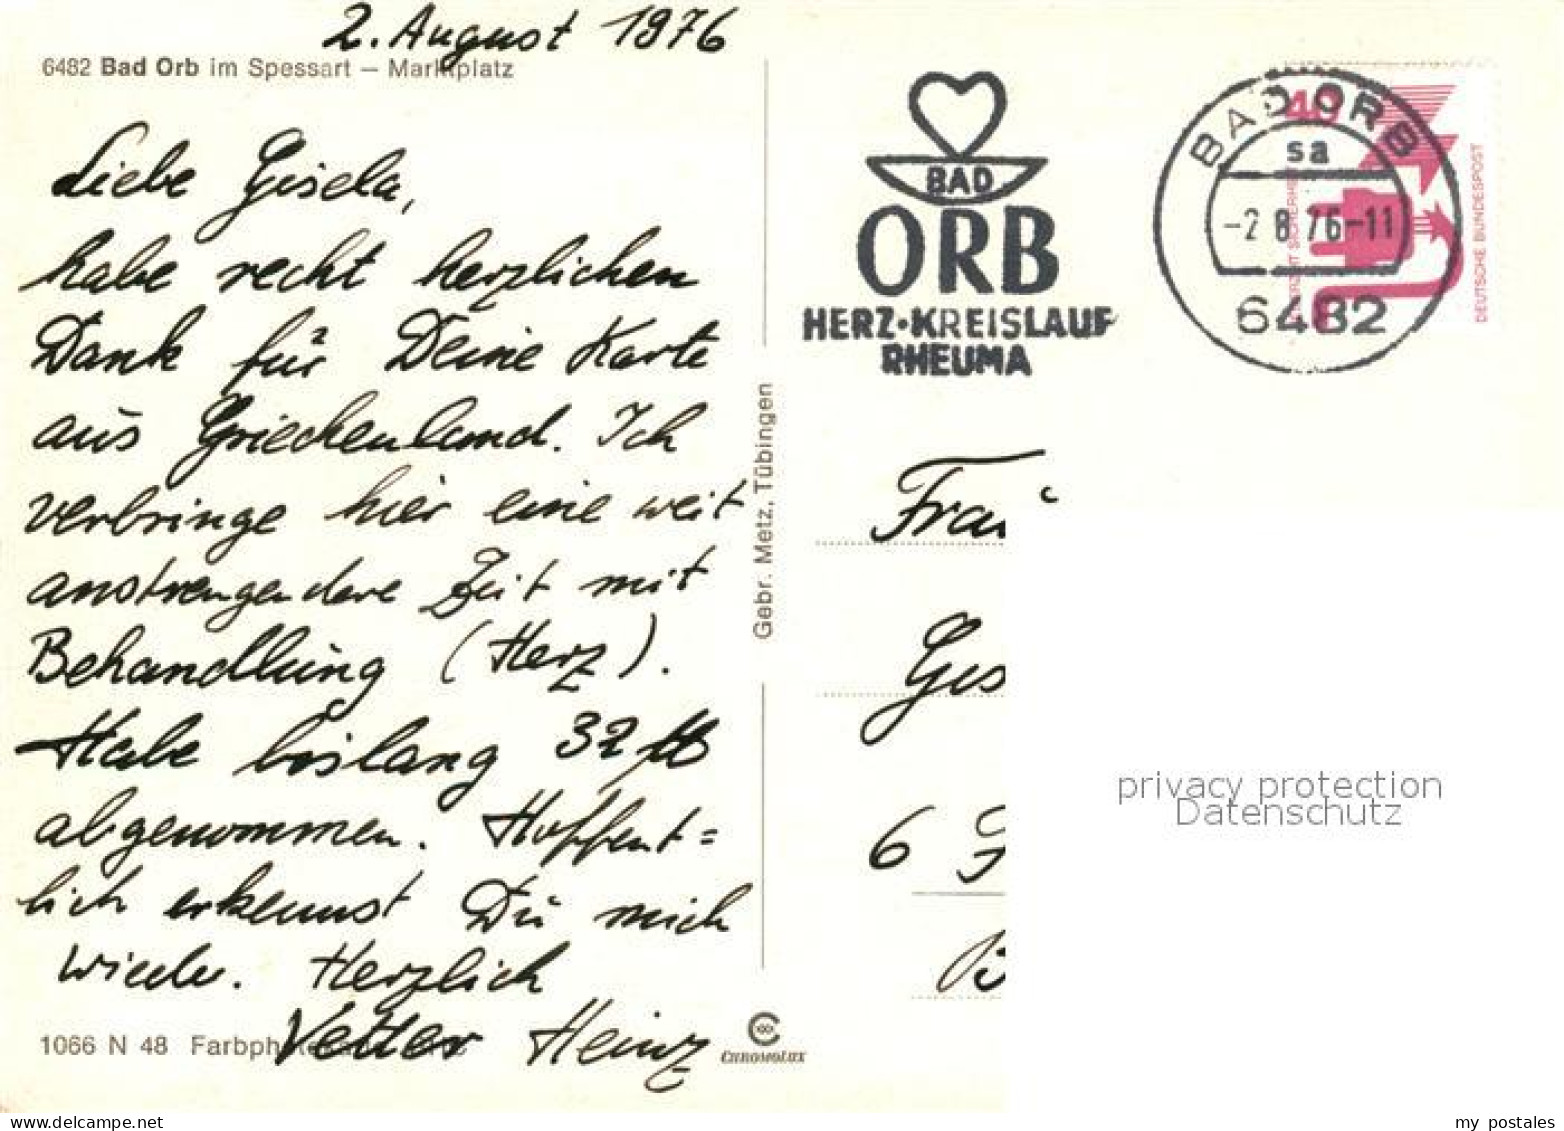 2. August 1976
6482 Bad Orb im Spessart – Marktplatz
Liebe Gisela,
habe recht herzlichen
Dank für Deine Karte
aus Griechenland. Ich
verbringe hier eine weit
anstrengendere Zeit mit
Behandlung (Herz).
Habe bislang 32 ℔
abgenommen. Hoffent=
lich erkennst Du mich
wieder. Herzlich
Vetter Heinz
1066 N 48 Farbph
CHROMOLUX
Gebr. Metz, Tübingen
BAD
ORB
HERZ·KREISLAUF
RHEUMA
BAD ORB
sa
-2.8.76-11
6482
40
DEUTSCHE BUNDESPOST
Frau
Gis
6 F
privacy protection
Datenschutz
www.ansichtskartenversand.com
my postales